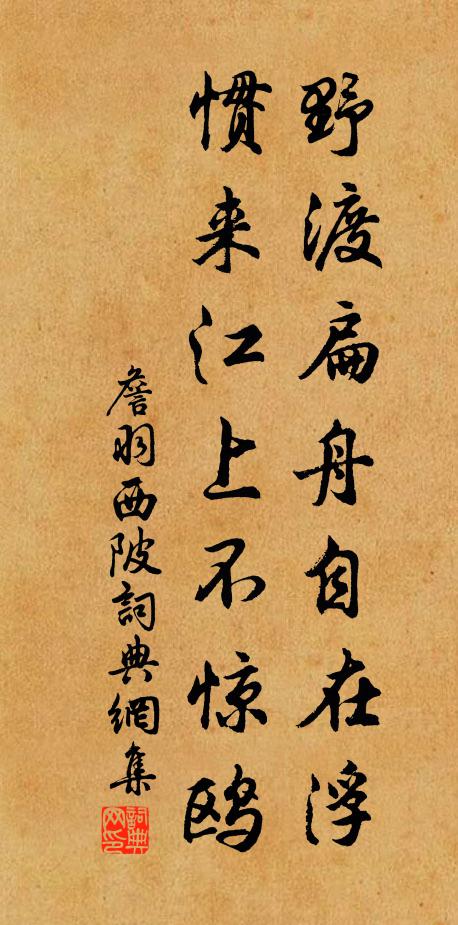 野渡扁舟自在浮
惯来江上不惊鸥
詹羽西陂詞典網集
詞典网印